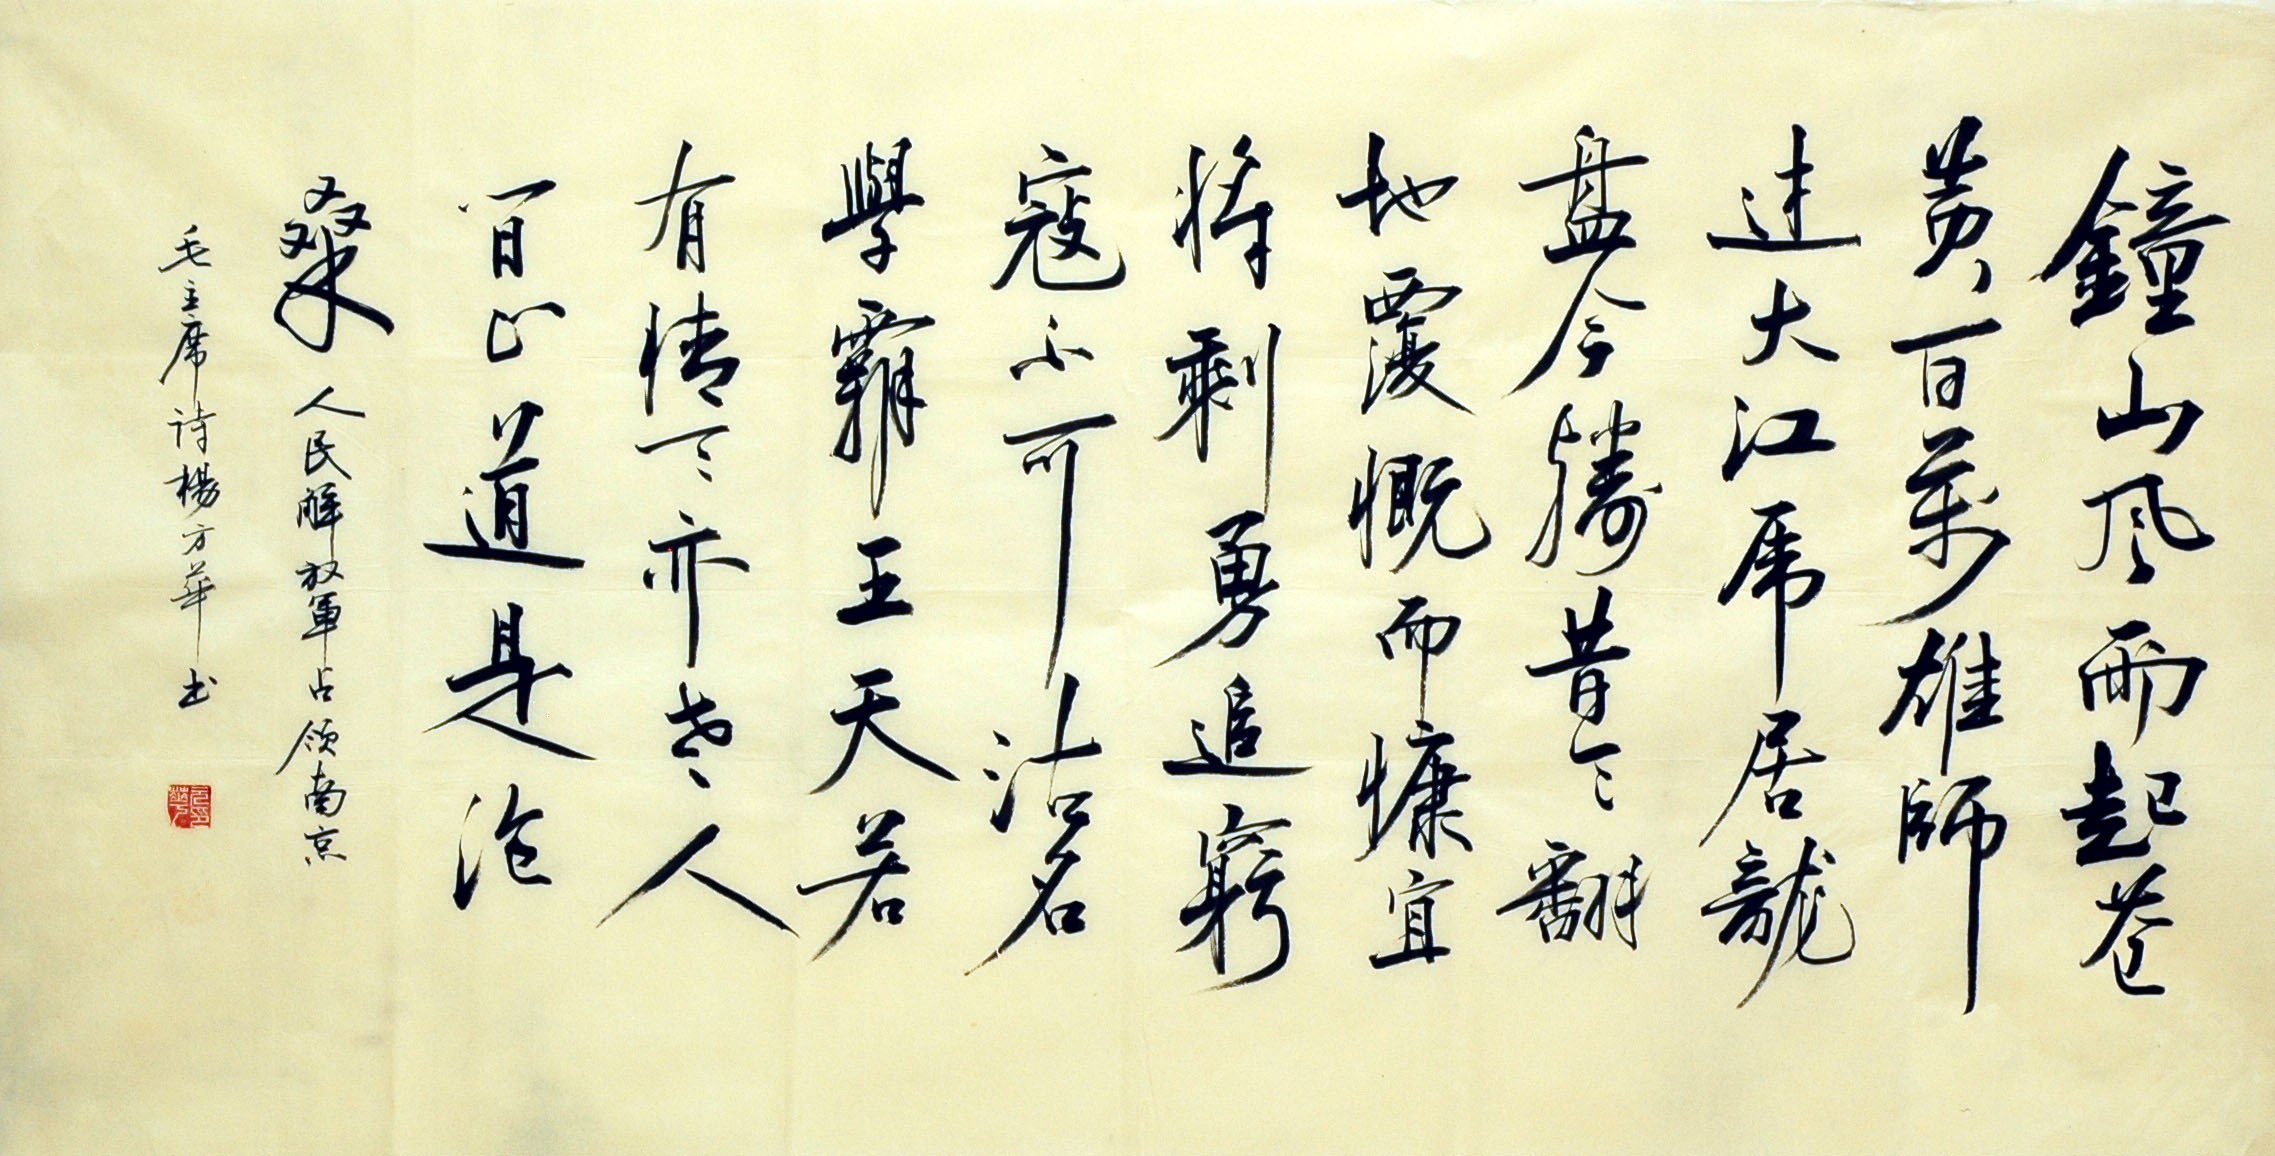 鐘山风雨起苍
黄百萬雄師
过大江虎居龍
盘今勝昔天翻
地覆慨而慷宜
将剩勇追窮
寇不可沽名
學霸王天若
有情天亦老人
间正道是沧
桑 人民解放軍占领南京
毛主席诗楊方華书